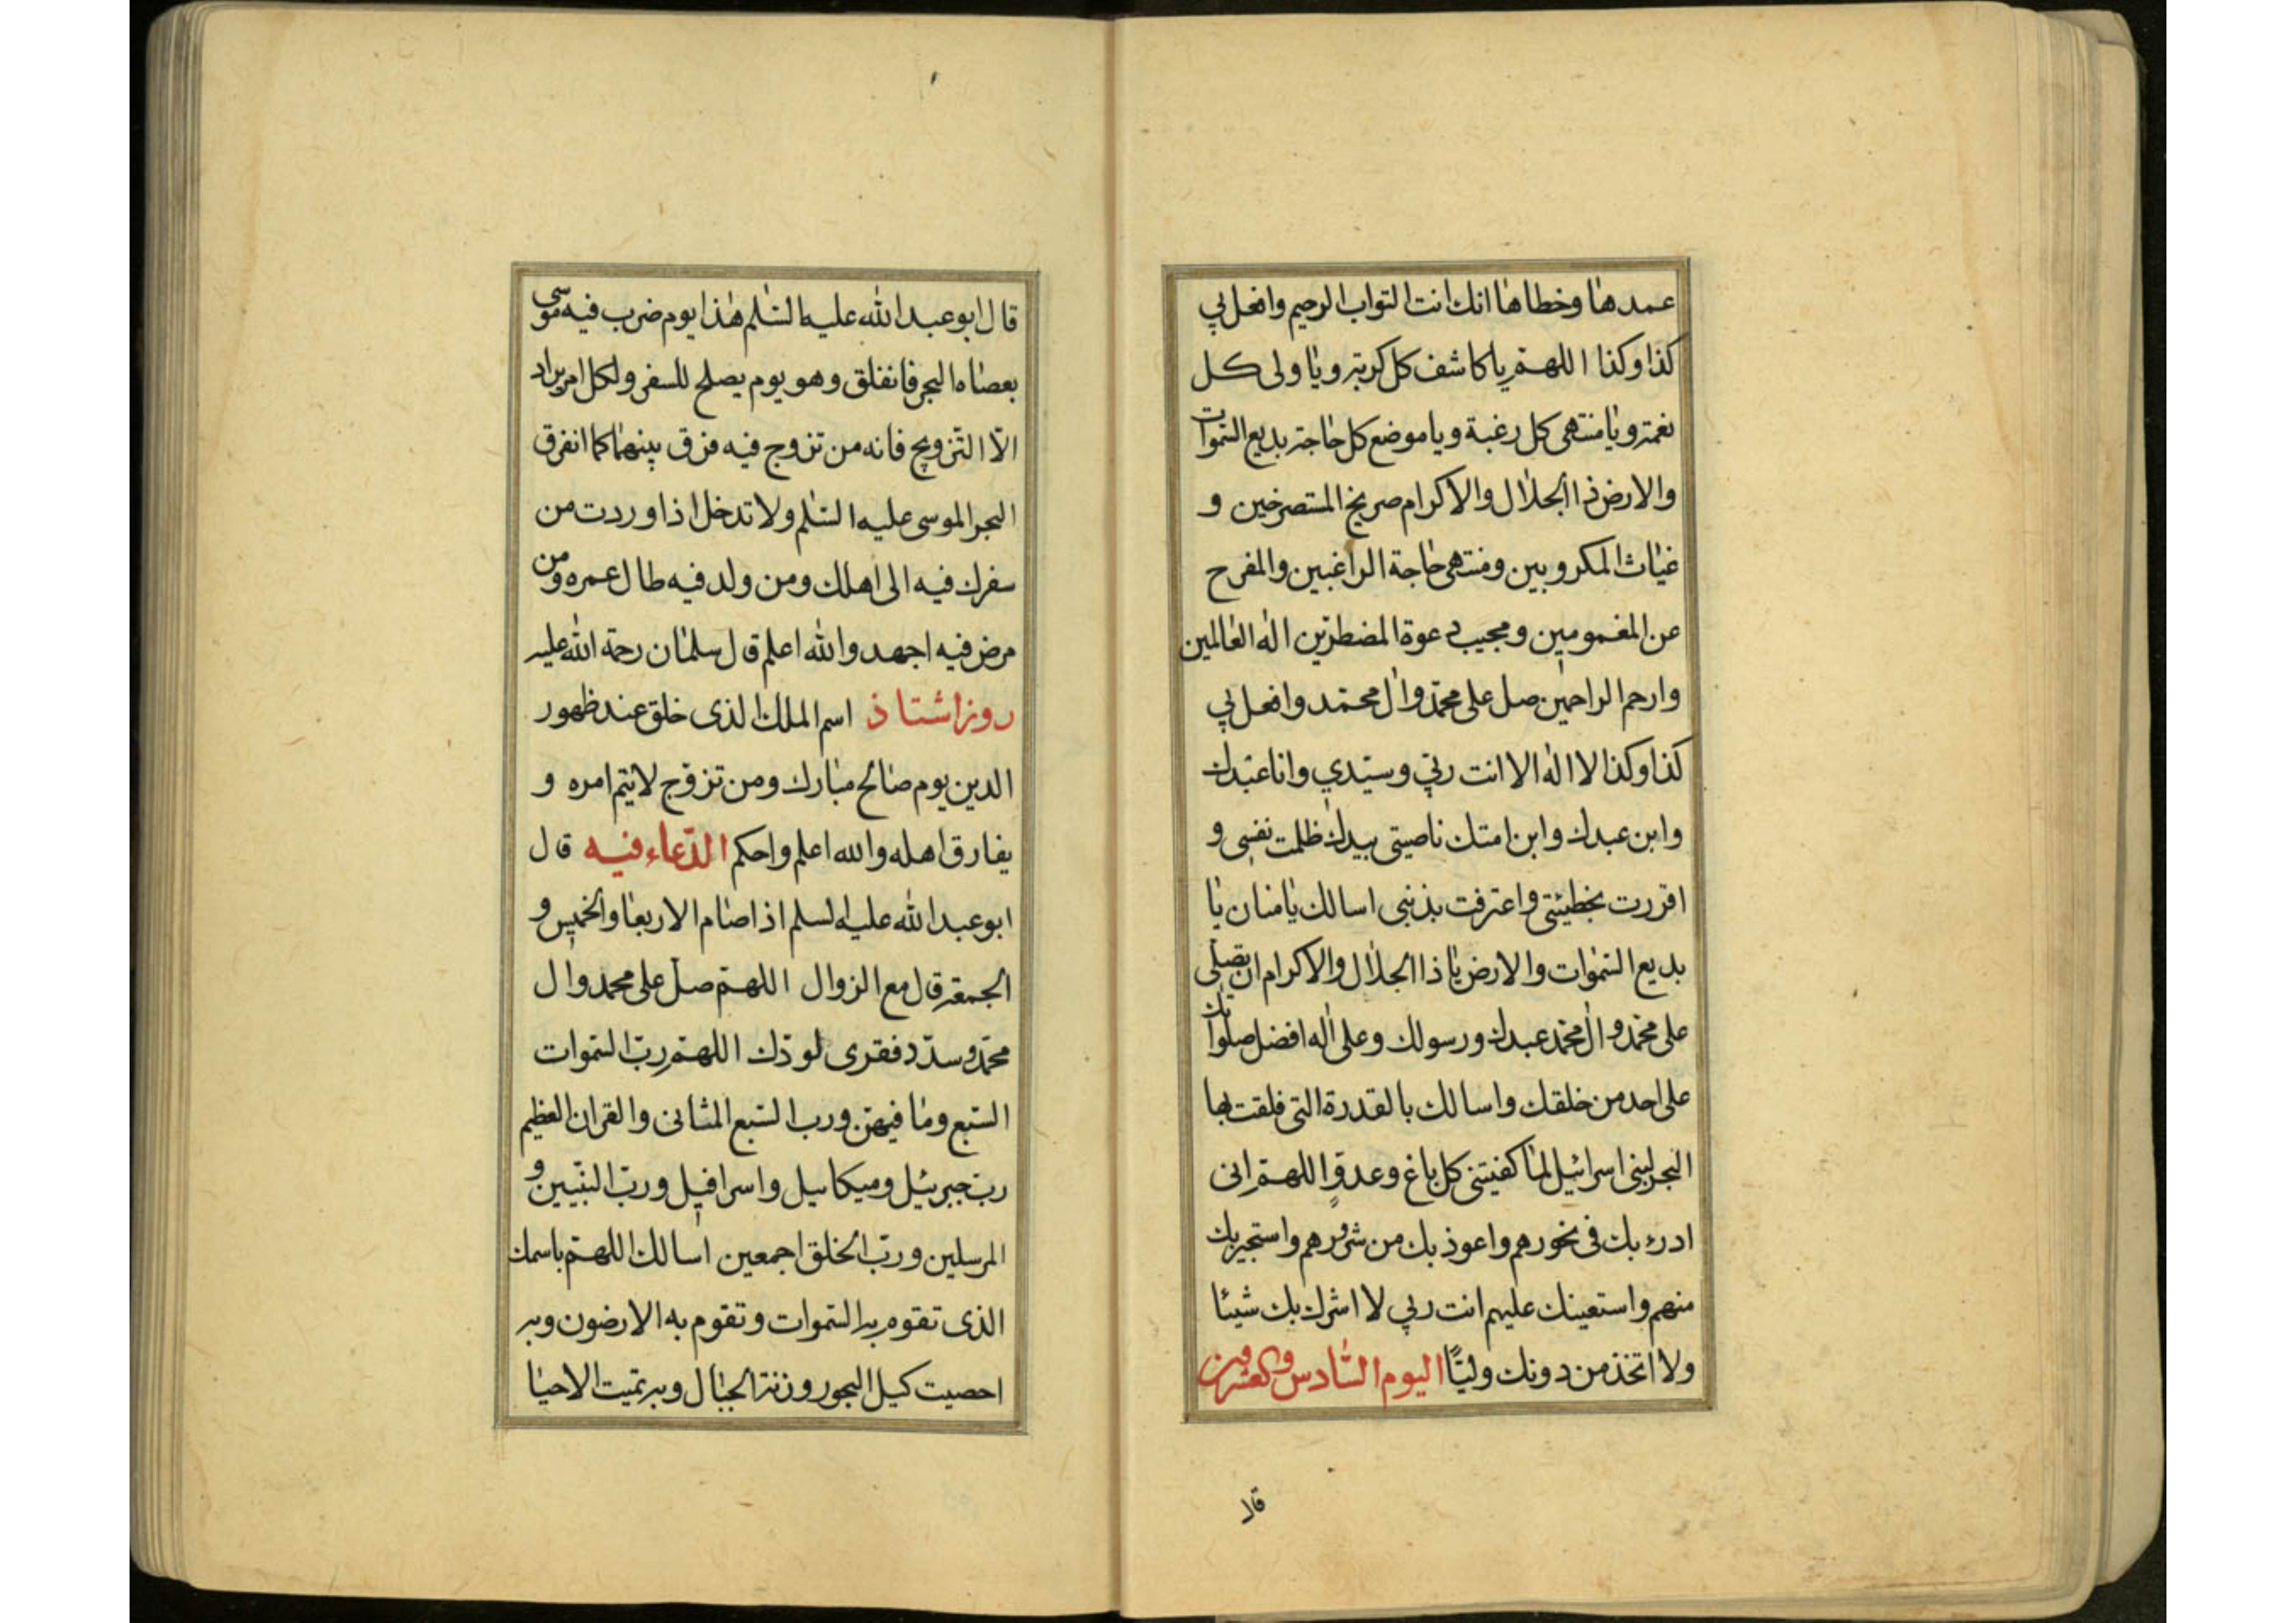 عمدها وخطاها انك انت التواب الرحيم وافعل بي
كذا وكذا اللهم يا كاشف كل كربة ويا ولى كل
نعمة ويا منتهى كل رغبة ويا موضع كل حاجة بديع السموات
والارض ذا الجلال والاكرام صريخ المستصرخين و
غياث المكروبين ومنتهى حاجة الراغبين والمفرح
عن المغمومين ومجيب دعوة المضطرين اله العالمين
وارحم الراحمين صل على محمد وال محمد وافعل بي
كذا وكذا لا اله الا انت ربي وسيدي وانا عبدك
وابن عبدك وابن امتك ناصيتى بيدك ظلمت نفسي و
اقررت بخطيئتى واعترفت بذنبى اسالك يا منان يا
بديع السموات والارض يا ذا الجلال والاكرام ان تصلى
على محمد وال محمد عبدك ورسولك وعلى اله افضل صلواتك
على احد من خلقك واسالك بالقدرة التى فلقت بها
البحر لبنى اسرائيل لما كفيتنى كل باغ وعدو اللهم انى
ادرء بك فى نحورهم واعوذ بك من شرورهم واستجير بك
منهم واستعينك عليهم انت ربي لا اشرك بك شيئا
ولا اتخذ من دونك وليّا اليوم السادس والعشرون
قال
قال ابو عبد الله عليه السلم هذا يوم ضرب فيه موسى
بعصاه البحر فانفلق وهو يوم يصلح للسفر ولكل امر يراد
الا التزويج فانه من تزوج فيه فرق بينهما كما انفرق
البحر لموسى عليه السلم ولا تدخل اذا وردت من
سفرك فيه الى اهلك ومن ولد فيه طال عمره ومن
مرض فيه اجهد والله اعلم قال سلمان رحمة الله عليه
روز اشتاذ اسم الملك الذى خلق عند ظهور
الدين يوم صالح مبارك ومن تزوج لا يتم امره و
يفارق اهله والله اعلم واحكم الدعاء فيه قال
ابو عبد الله عليه لسلم اذا صام الاربعا والخميس و
الجمعة قال مع الزوال اللهم صل على محمد وال
محمد وسدد فقرى لودك اللهم رب السموات
السبع وما فيهن ورب السبع المثانى والقران العظيم
رب جبرئيل وميكاىيل واسرافيل ورب النبيين و
المرسلين ورب الخلق اجمعين اسالك اللهم باسمك
الذى تقوم به السموات وتقوم به الارضون وبه
احصيت كيل البحور وزنة الجبال وبه تميت الاحيا